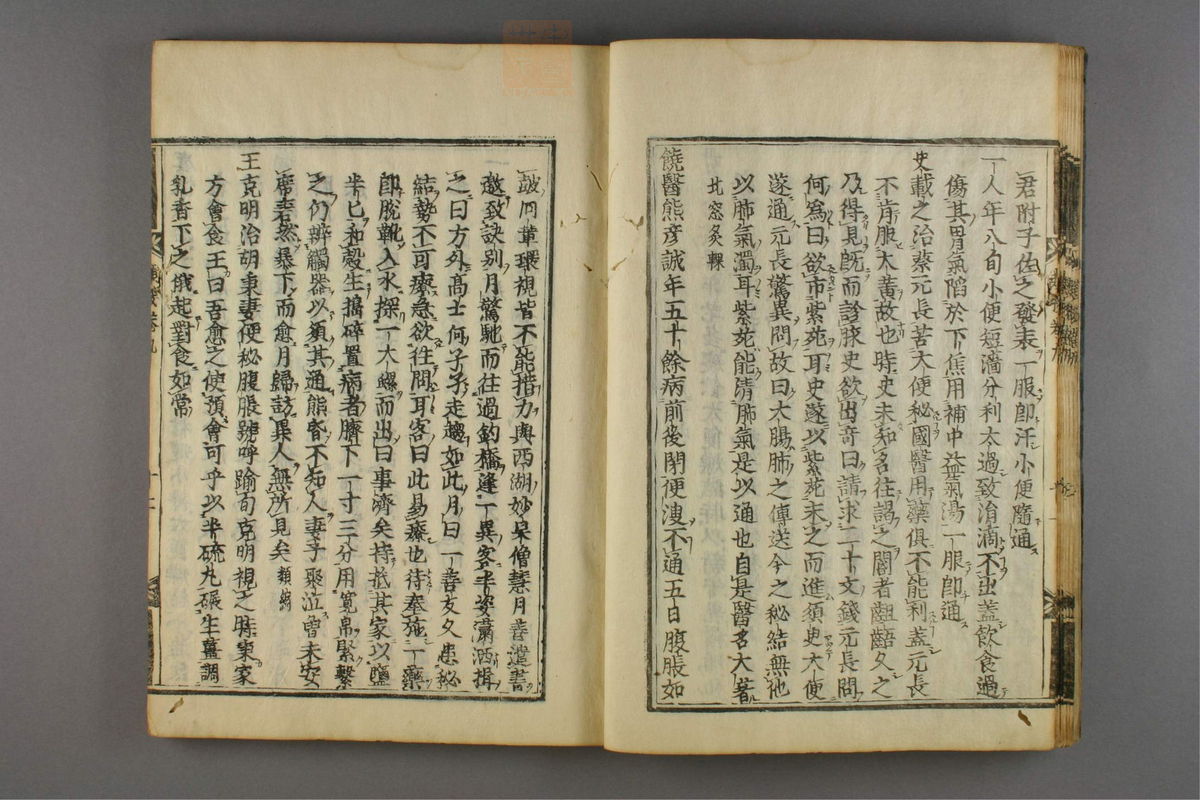 君附子佐之發表一服卽汗小便隨通
一人年八旬小便短濇分利太過致涓滴不出蓋飲食過
傷其胃氣陷於下焦用補中益氣湯一服卽通
史載之治蔡元長苦大便秘國醫用藥俱不能利蓋元長
不肯服大黃故也時史未知名往謁之閽者齟齬久之
乃得見旣而診脉史欲出奇曰請求二十文錢元長問
何爲曰欲市紫菀耳史遂以紫菀末之而進須臾大便
遂通元長驚異問故曰大腸肺之傳送今之秘結無他
以肺氣濁耳紫菀能淸肺氣是以通也自是醫名大著
北窓炙輠
饒醫熊彦誠年五十餘病前後閉便溲不通五日腹脹如
皷同輩環視皆不能措力與西湖妙杲僧慧月善遣書
邀致訣別月驚馳而往過釣橋逢一異客半姿瀟洒揖
之曰方外高士何孑孑走趨如此月曰一善友久患秘
結勢不可療急欲往問耳客曰此易療也待奉施一藥
卽脫靴入水探一大螺而出曰事濟矣持抵其家以鹽
半匕和殼生搗碎置病者臍下一寸三分用寬帛緊繫
之仍辨觸器以須其通熊昏不知人妻子聚泣曾未安
席砉然暴下而愈月歸訪異人無所見矣 類編
王克明治胡秉妻便秘腹脹號呼踰旬克明視之時秉家
方會食王曰吾愈之使預會可乎以半硫丸碾生薑調
乳香下之俄起對食如常